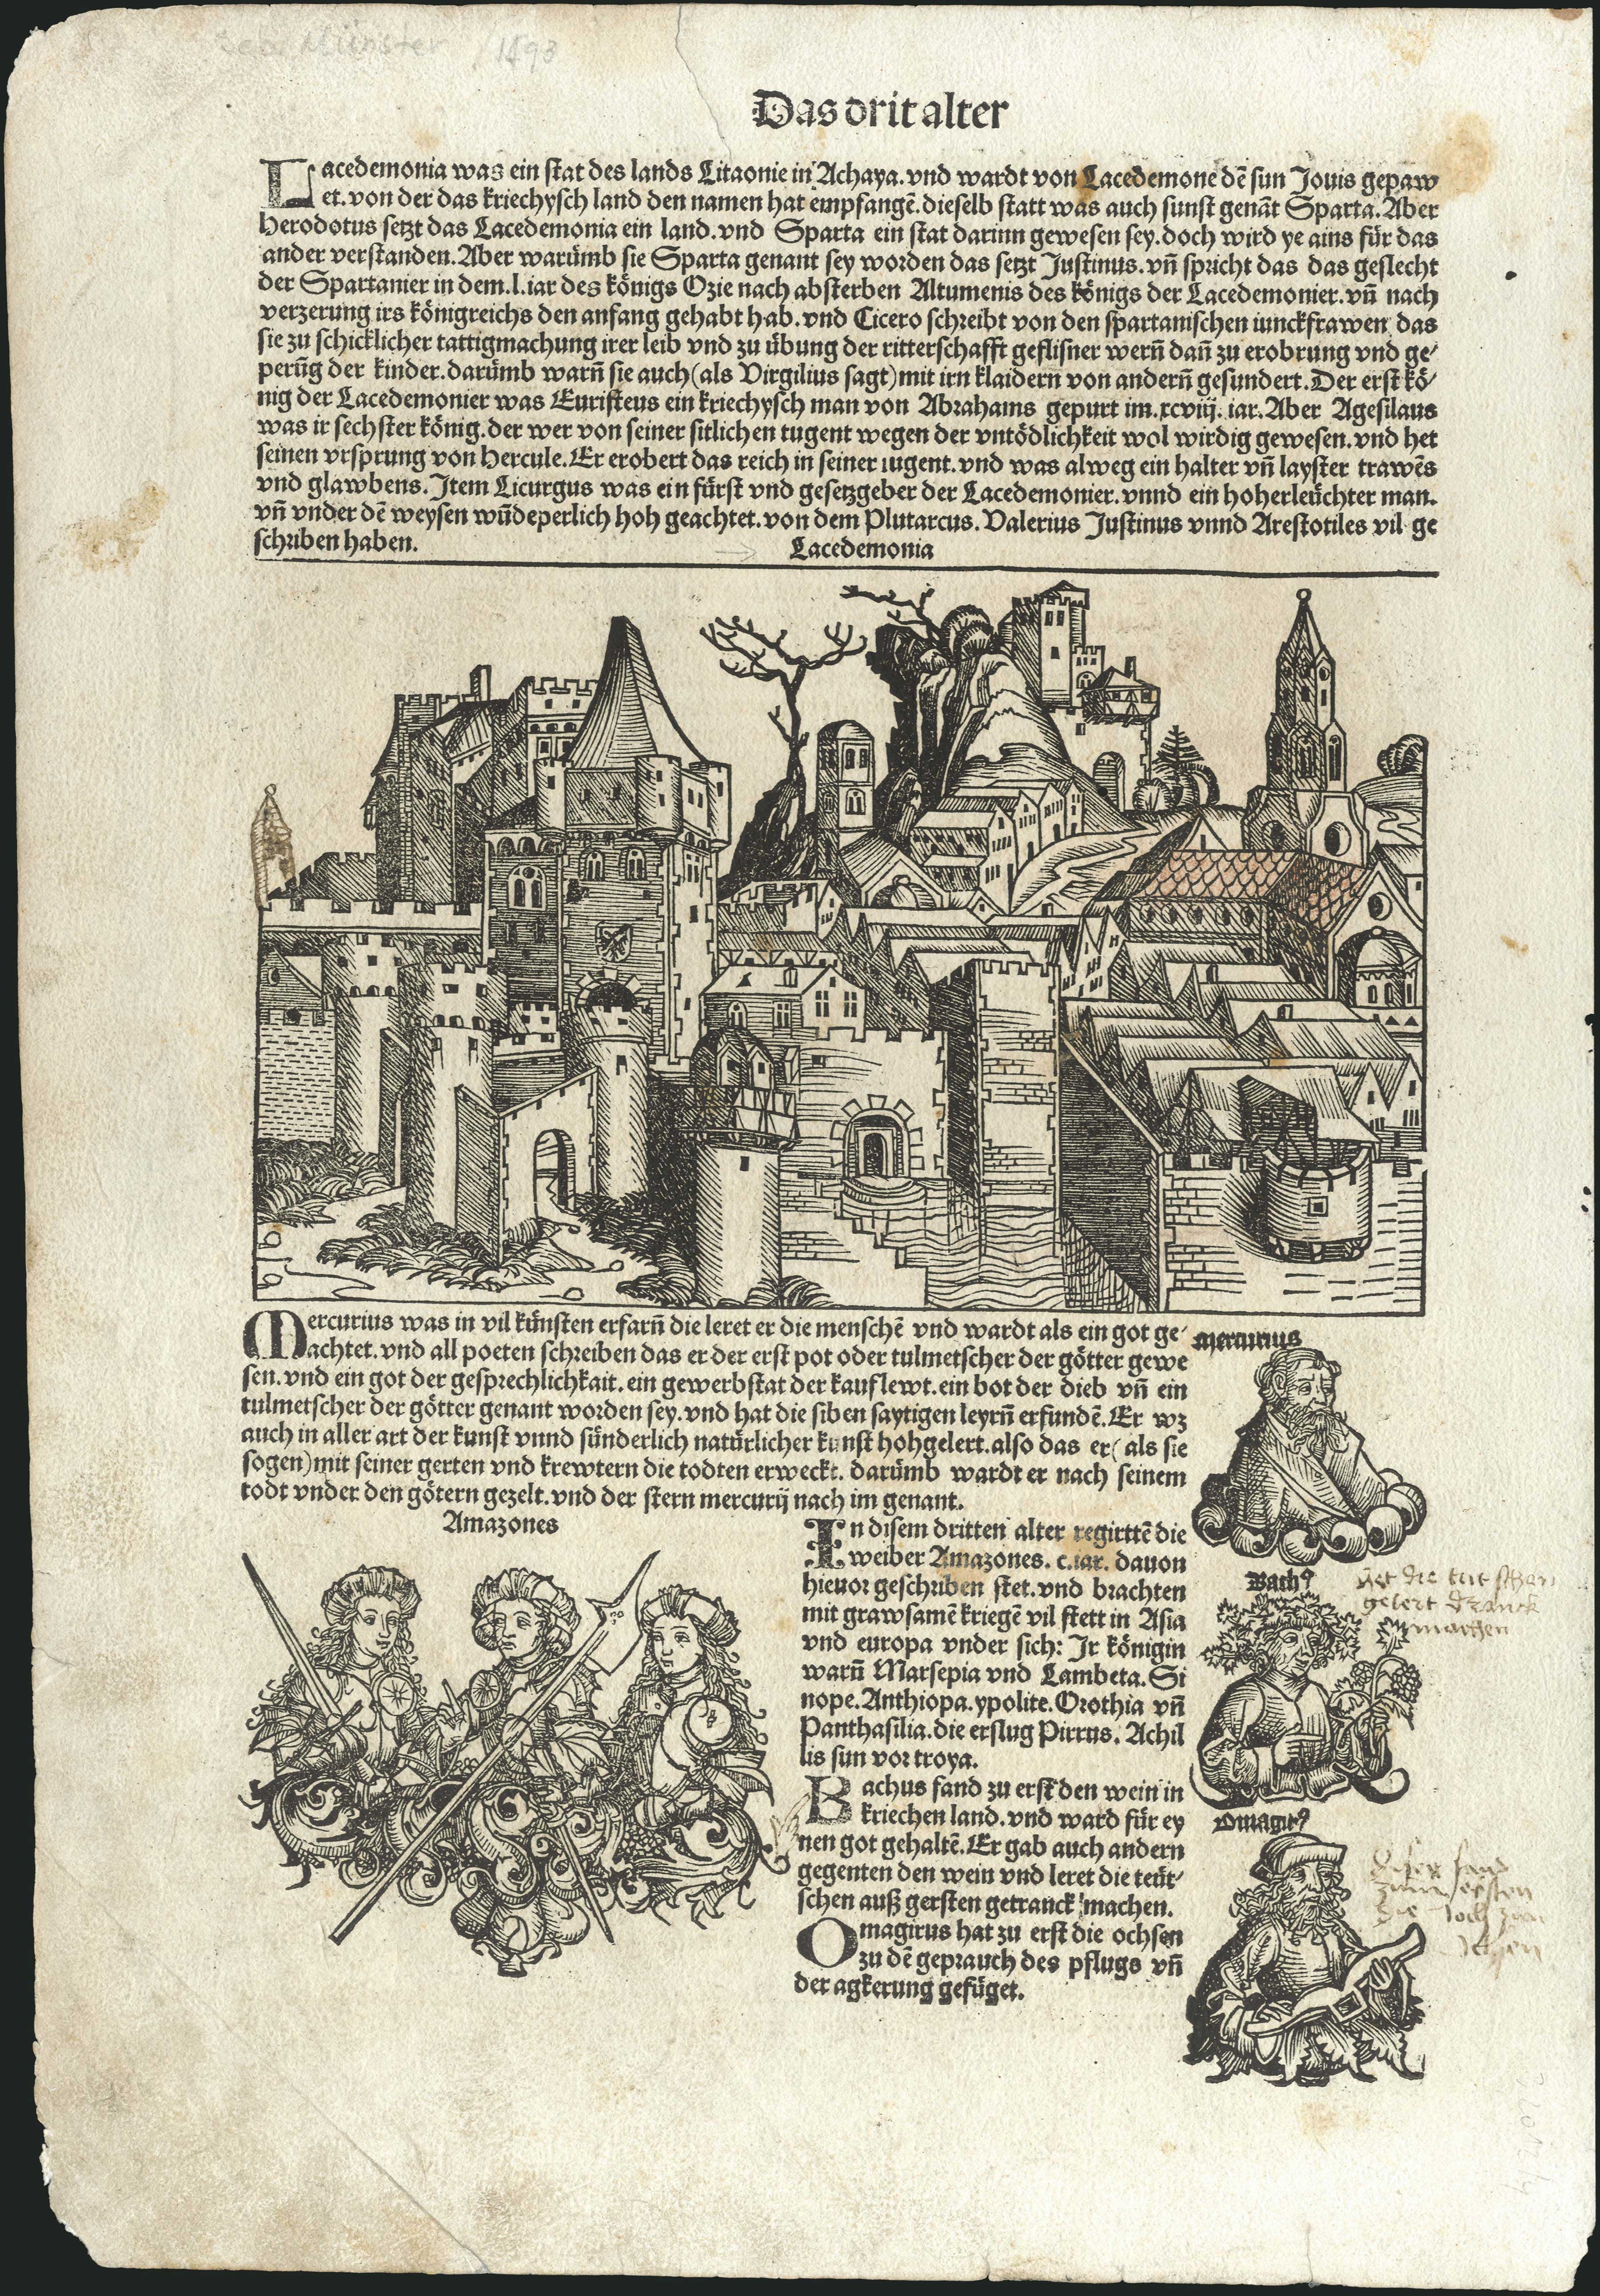 Seb. Münster / 1493
Das drit alter
Lacedemonia was ein stat des lands Litaonie in Achaya. vnd wardt von Lacedemone dē sun Jouis gepaw
et. von der das kriechysch land den namen hat empfangē. dieselb statt was auch sunst genāt Sparta. Aber
Herodotus setzt das Lacedemonia ein land. vnd Sparta ein stat darinn gewesen sey. doch wird ye ains für das
ander verstanden. Aber warümb sie Sparta genant sey worden das setzt Justinus. vñ spricht das das geslecht
der Spartanier in dem .l. iar des königs Ozie nach absterben Altumenis des königs der Lacedemonier. vñ nach
verzerung irs königreichs den anfang gehabt hab. vnd Cicero schreibt von den spartanischen iunckfrawen das
sie zu schicklicher tattigmachung irer leib vnd zu übung der ritterschafft geflisner wern̄ dañ zu erobrung vnd ge-
perūg der kinder. darümb warn̄ sie auch (als Virgilius sagt) mit irn klaidern von andern̄ gesundert. Der erst kö-
nig der Lacedemonier was Euristeus ein kriechysch man von Abrahams gepurt im .xcviij. iar. Aber Agesilaus
was ir sechster könig. der wer von seiner sitlichen tugent wegen der vntödlichkeit wol wirdig gewesen. vnd het
seinen vrsprung von Hercule. Er erobert das reich in seiner iugent. vnd was alweg ein halter vñ layster trawēs
vnd glawbens. Item Licurgus was ein fürst vnd gesetzgeber der Lacedemonier. vnnd ein hoherleüchter man.
vñ vnder dē weysen wūdeperlich hoh geachtet. von dem Plutarcus. Valerius Justinus vnnd Arestotiles vil ge
schriben haben.
Lacedemonia
Mercurius was in vil künsten erfarn̄ die leret er die menschē vnd wardt als ein got ge-
achtet. vnd all poeten schreiben das er der erst pot oder tulmetscher der götter gewe
sen. vnd ein got der gesprechlichkait. ein gewerbstat der kauflewt. ein bot der dieb vñ ein
tulmetscher der götter genant worden sey. vnd hat die siben saytigen leyrn̄ erfundē. Er wz
auch in aller art der kunst vnnd sünderlich natürlicher kunst hohgelert. also das er (als sie
sogen) mit seiner gerten vnd krewtern die todten erweckt. darümb wardt er nach seinem
todt vnder den götern gezelt. vnd der stern mercurij nach im genant.
Mercurius
Amazones
In disem dritten alter regirttē die
weiber Amazones. c. iar. dauon
hieuor geschriben stet. vnd brachten
mit grawsamē kriegē vil stett in Asia
vnd europa vnder sich: Ir königin
warn̄ Marsepia vnd Lambeta. Si
nope. Anthiopa. ypolite. Orothia vñ
Panthasilia. die erslug Pirrus. Achil
lis sun vor troya.
Bachus fand zu erst den wein in
kriechen land. vnd ward für ey
nen got gehaltē. Er gab auch andern
gegenten den wein vnd leret die teüt-
schen auß gersten getranck machen.
Omagirus hat zu erst die ochsen
zu dē geprauch des pflugs vñ
der agkerung gefüget.
Bachꝰ
die
gelert dranck
machen
Omagirꝰ
Diser fand
zum ersten
die Joch